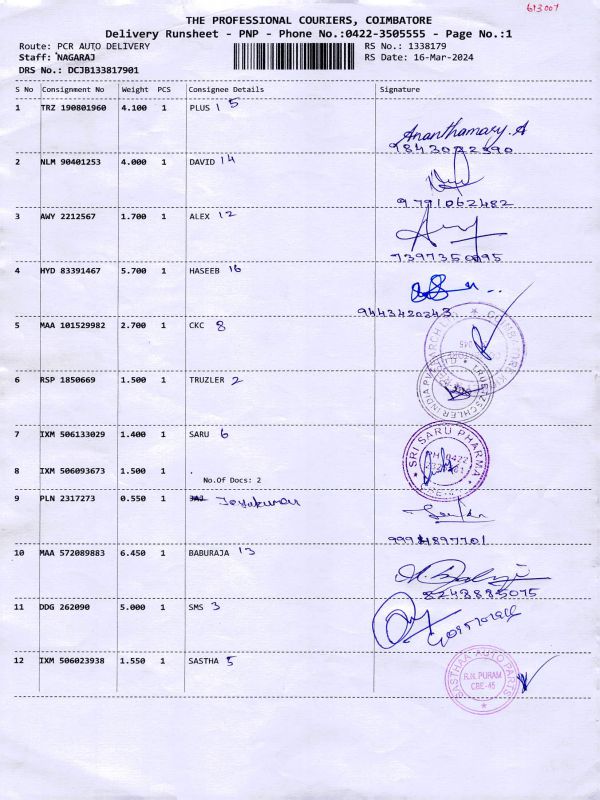 613007
THE PROFESSIONAL COURIERS, COIMBATORE
Delivery Runsheet - PNP - Phone No.:0422-3505555 - Page No.:1
Route: PCR AUTO DELIVERY RS No.: 1338179
Staff: NAGARAJ RS Date: 16-Mar-2024
DRS No.: DCJB133817901
S No Consignment No Weight PCS Consignee Details Signature
1 TRZ 190801960 4.100 1 PLUS 15
Ananthamary.A
9843022590
2 NLM 90401253 4.000 1 DAVID 14
9791062482
3 AWY 2212567 1.700 1 ALEX 12
7397350095
4 HYD 83391467 5.700 1 HASEEB 16
9443420343
5 MAA 101529982 2.700 1 CKC 8
6 RSP 1850669 1.500 1 TRUZLER 2
7 IXM 506133029 1.400 1 SARU 6
SRI SARU PHARMA
8 IXM 506093673 1.500 1 .
No.Of Docs: 2
9 PLN 2317273 0.550 1 Jeyakumar
9994897701
10 MAA 572089883 6.450 1 BABURAJA 13
8248885075
11 DDG 262090 5.000 1 SMS 3
12 IXM 506023938 1.550 1 SASTHA 5
SASTHAA AUTO PARTS
R.N. PURAM
CBE-45